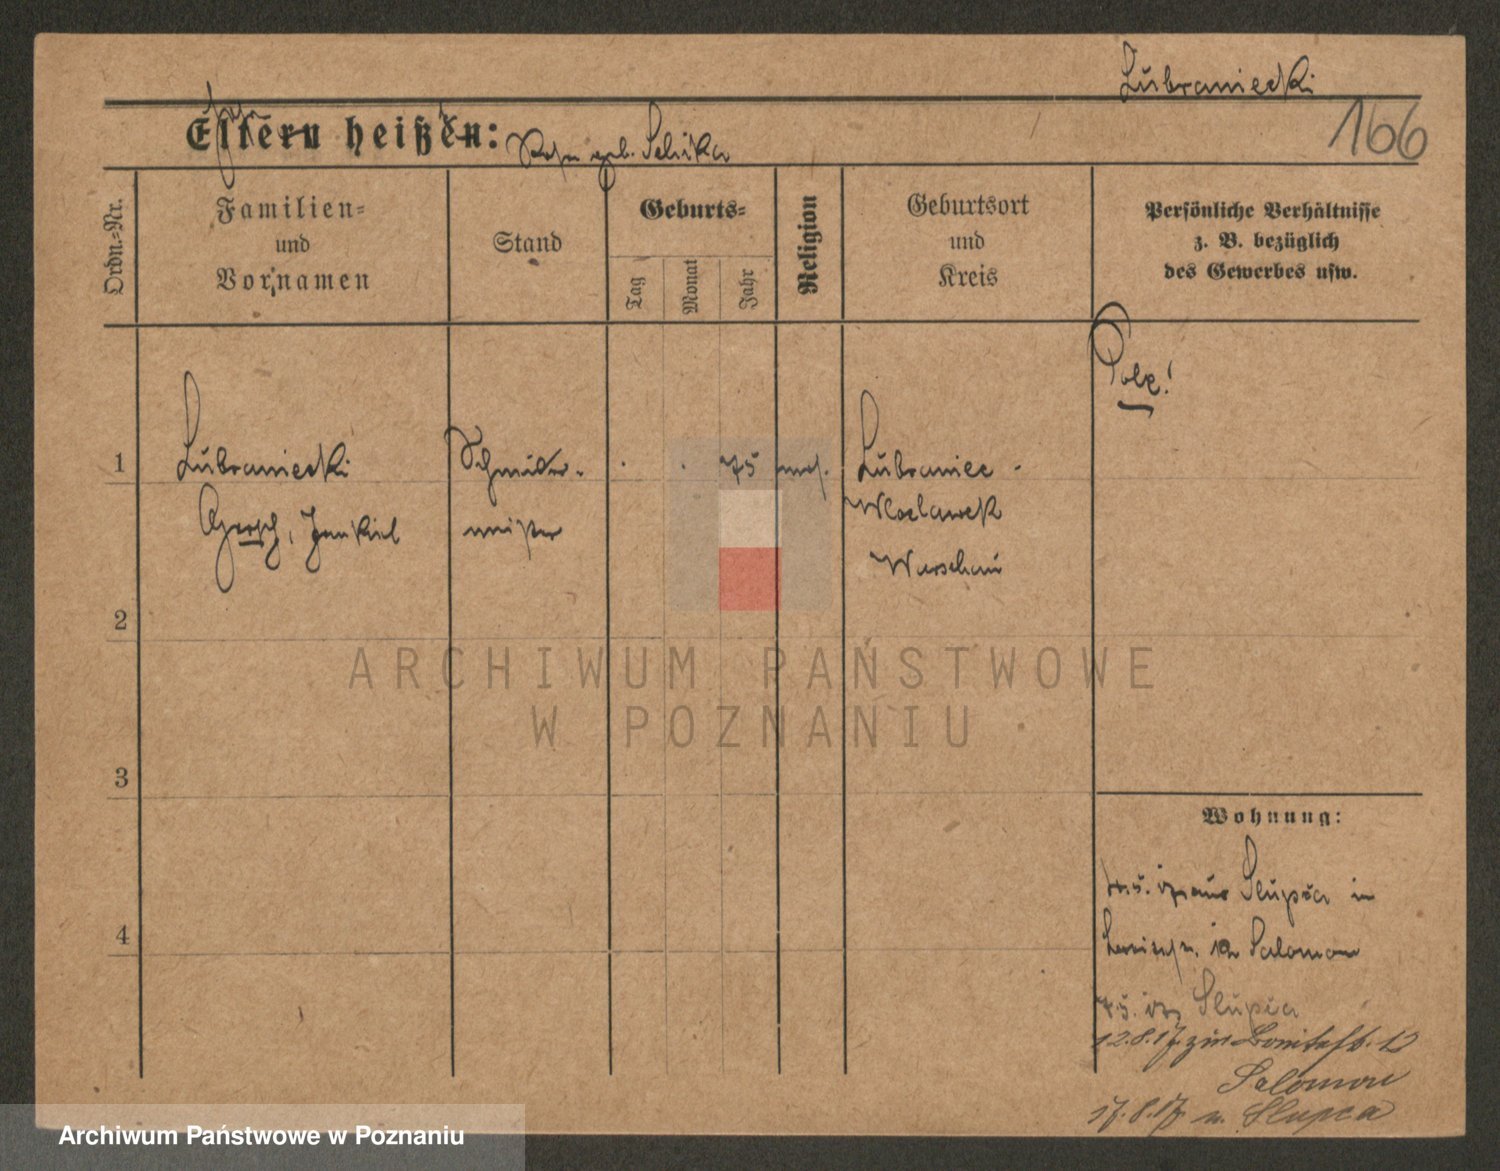 Lubraniecki
166
Eltern heißen: geb.
Ordn.=Nr.
Familien=
und
Vornamen
Stand
Geburts=
Tag
Monat
Jahr
Religion
Geburtsort
und
Kreis
Persönliche Verhältnisse
z. B. bezüglich
des Gewerbes usw.
Pole!
1
Lubraniecki
Schneider-
75
mos.
Lubraniec -
Jankiel
meister
Wloclawek
Warschau
2
3
4
Wohnung:
aus Slupca in
Salomon
Slupca
12.8.17 12
Salomon
17.8.17 n. Slupca
ARCHIWUM PAŃSTWOWE
W POZNANIU
Archiwum Państwowe w Poznaniu